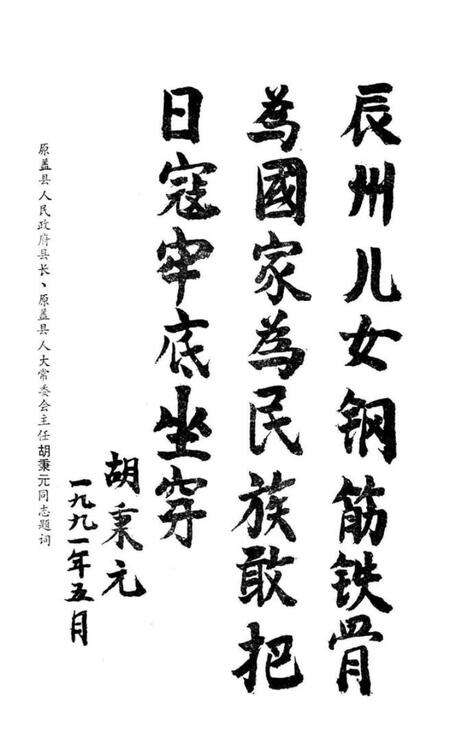 辰州儿女钢筋铁骨
为國家为民族敢把
日寇牢底坐穿
胡秉元
一九九一年五月
原盖县人民政府县长、原盖县人大常委会主任胡秉元同志题词